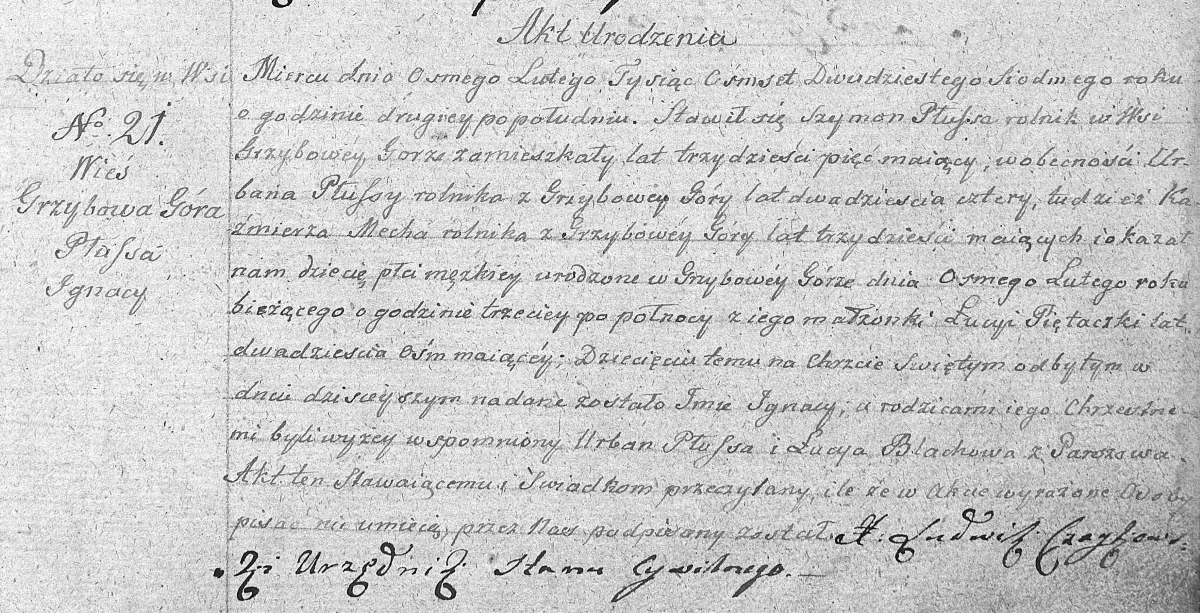 Akt Urodzenia
Działo się w Wsi Miercu dnia Osmego Lutego Tysiąc Ośmset Dwudziestego Siodmego roku
No. 21.
Wieś
Grzybowa Góra
Płussa
Ignacy
o godzinie drugiey po południu. Stawił się Szymon Płussa rolnik w Wsi
Grzybowéy Gorze zamieszkały lat trzydzieści pięć maiący, w obecności Ur-
bana Płussy rolnika z Grzybowéy Góry lat dwadzieścia cztery, tudzież Ka
źmierza Mecha rolnika z Grzybowéy Góry lat trzydzieści maiących i okazał
nam dziecię płci męzkiey urodzone w Grzybowéy Górze dnia Osmego Lutego roku
bieżącego o godzinie trzeciey po połnocy z iego małżonki Łucyi Piętaczki lat
dwadzieścia Ośm maiącéy; Dziecięciu temu na Chrzcie Swiętym odbytym w
dniu dzisieyszym nadane zostało Imie Ignacy, a rodzicami iego Chrzestne-
mi byli wyzey wspomniony Urban Płussa i Łucya Blachowa z Parszowa.
Akt ten Stawaiącemu i Świadkom przeczytany, ile że w Akcie wyrażone Osoby
pisać nie umieią, przez Nas podpisany został X. Ludwik Czaykows-
ki Urzędnik Stanu Cywilnego.